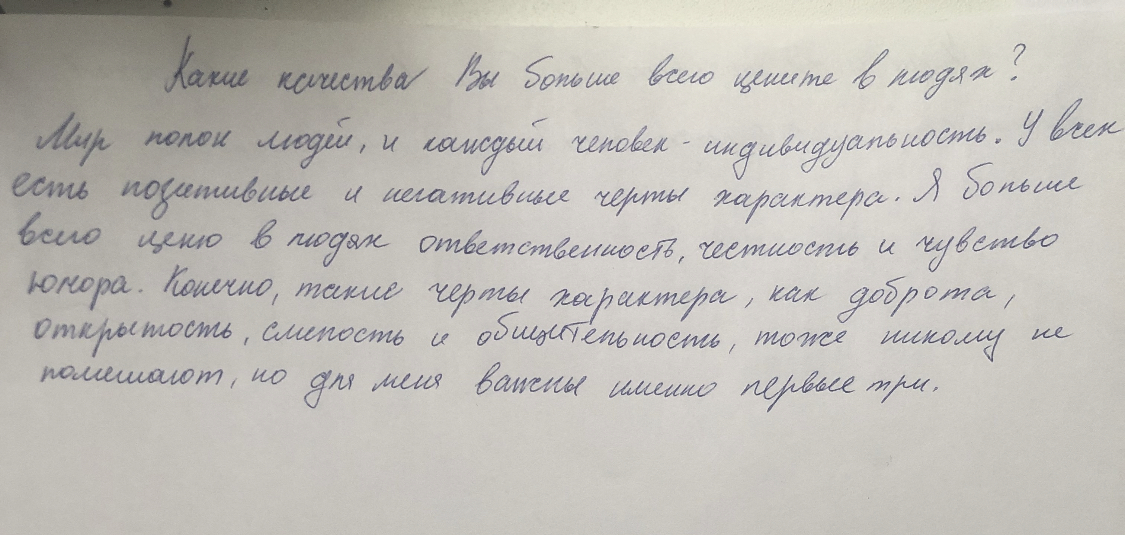 Какие качества Вы больше всего цените в людях?
Мир полон людей, и каждый человек - индивидуальность. У всех
есть позитивные и негативные черты характера. Я больше
всего ценю в людях ответственность, честность и чувство
юмора. Конечно, такие черты характера, как доброта,
открытость, смелость и общительность, тоже никому не
помешают, но для меня важны именно первые три.